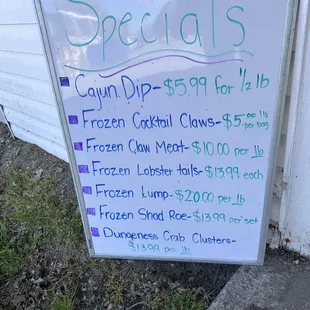 Specials
Cajun Dip - $5.99 for 1/2 lb
Frozen Cocktail Claws - $5.00 1 lb per bag
Frozen Claw Meat - $10.00 per lb
Frozen Lobster tails - $13.99 each
Frozen Lump - $20.00 per lb
Frozen Shad Roe - $13.99 per set
Dungeness Crab Clusters -
$13.99 per lb